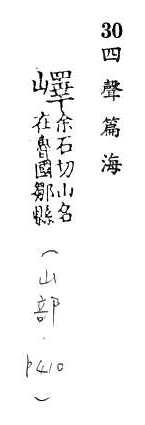 30四聲篇海
嶧余石切山名
在魯國鄒縣
(山部.p410)